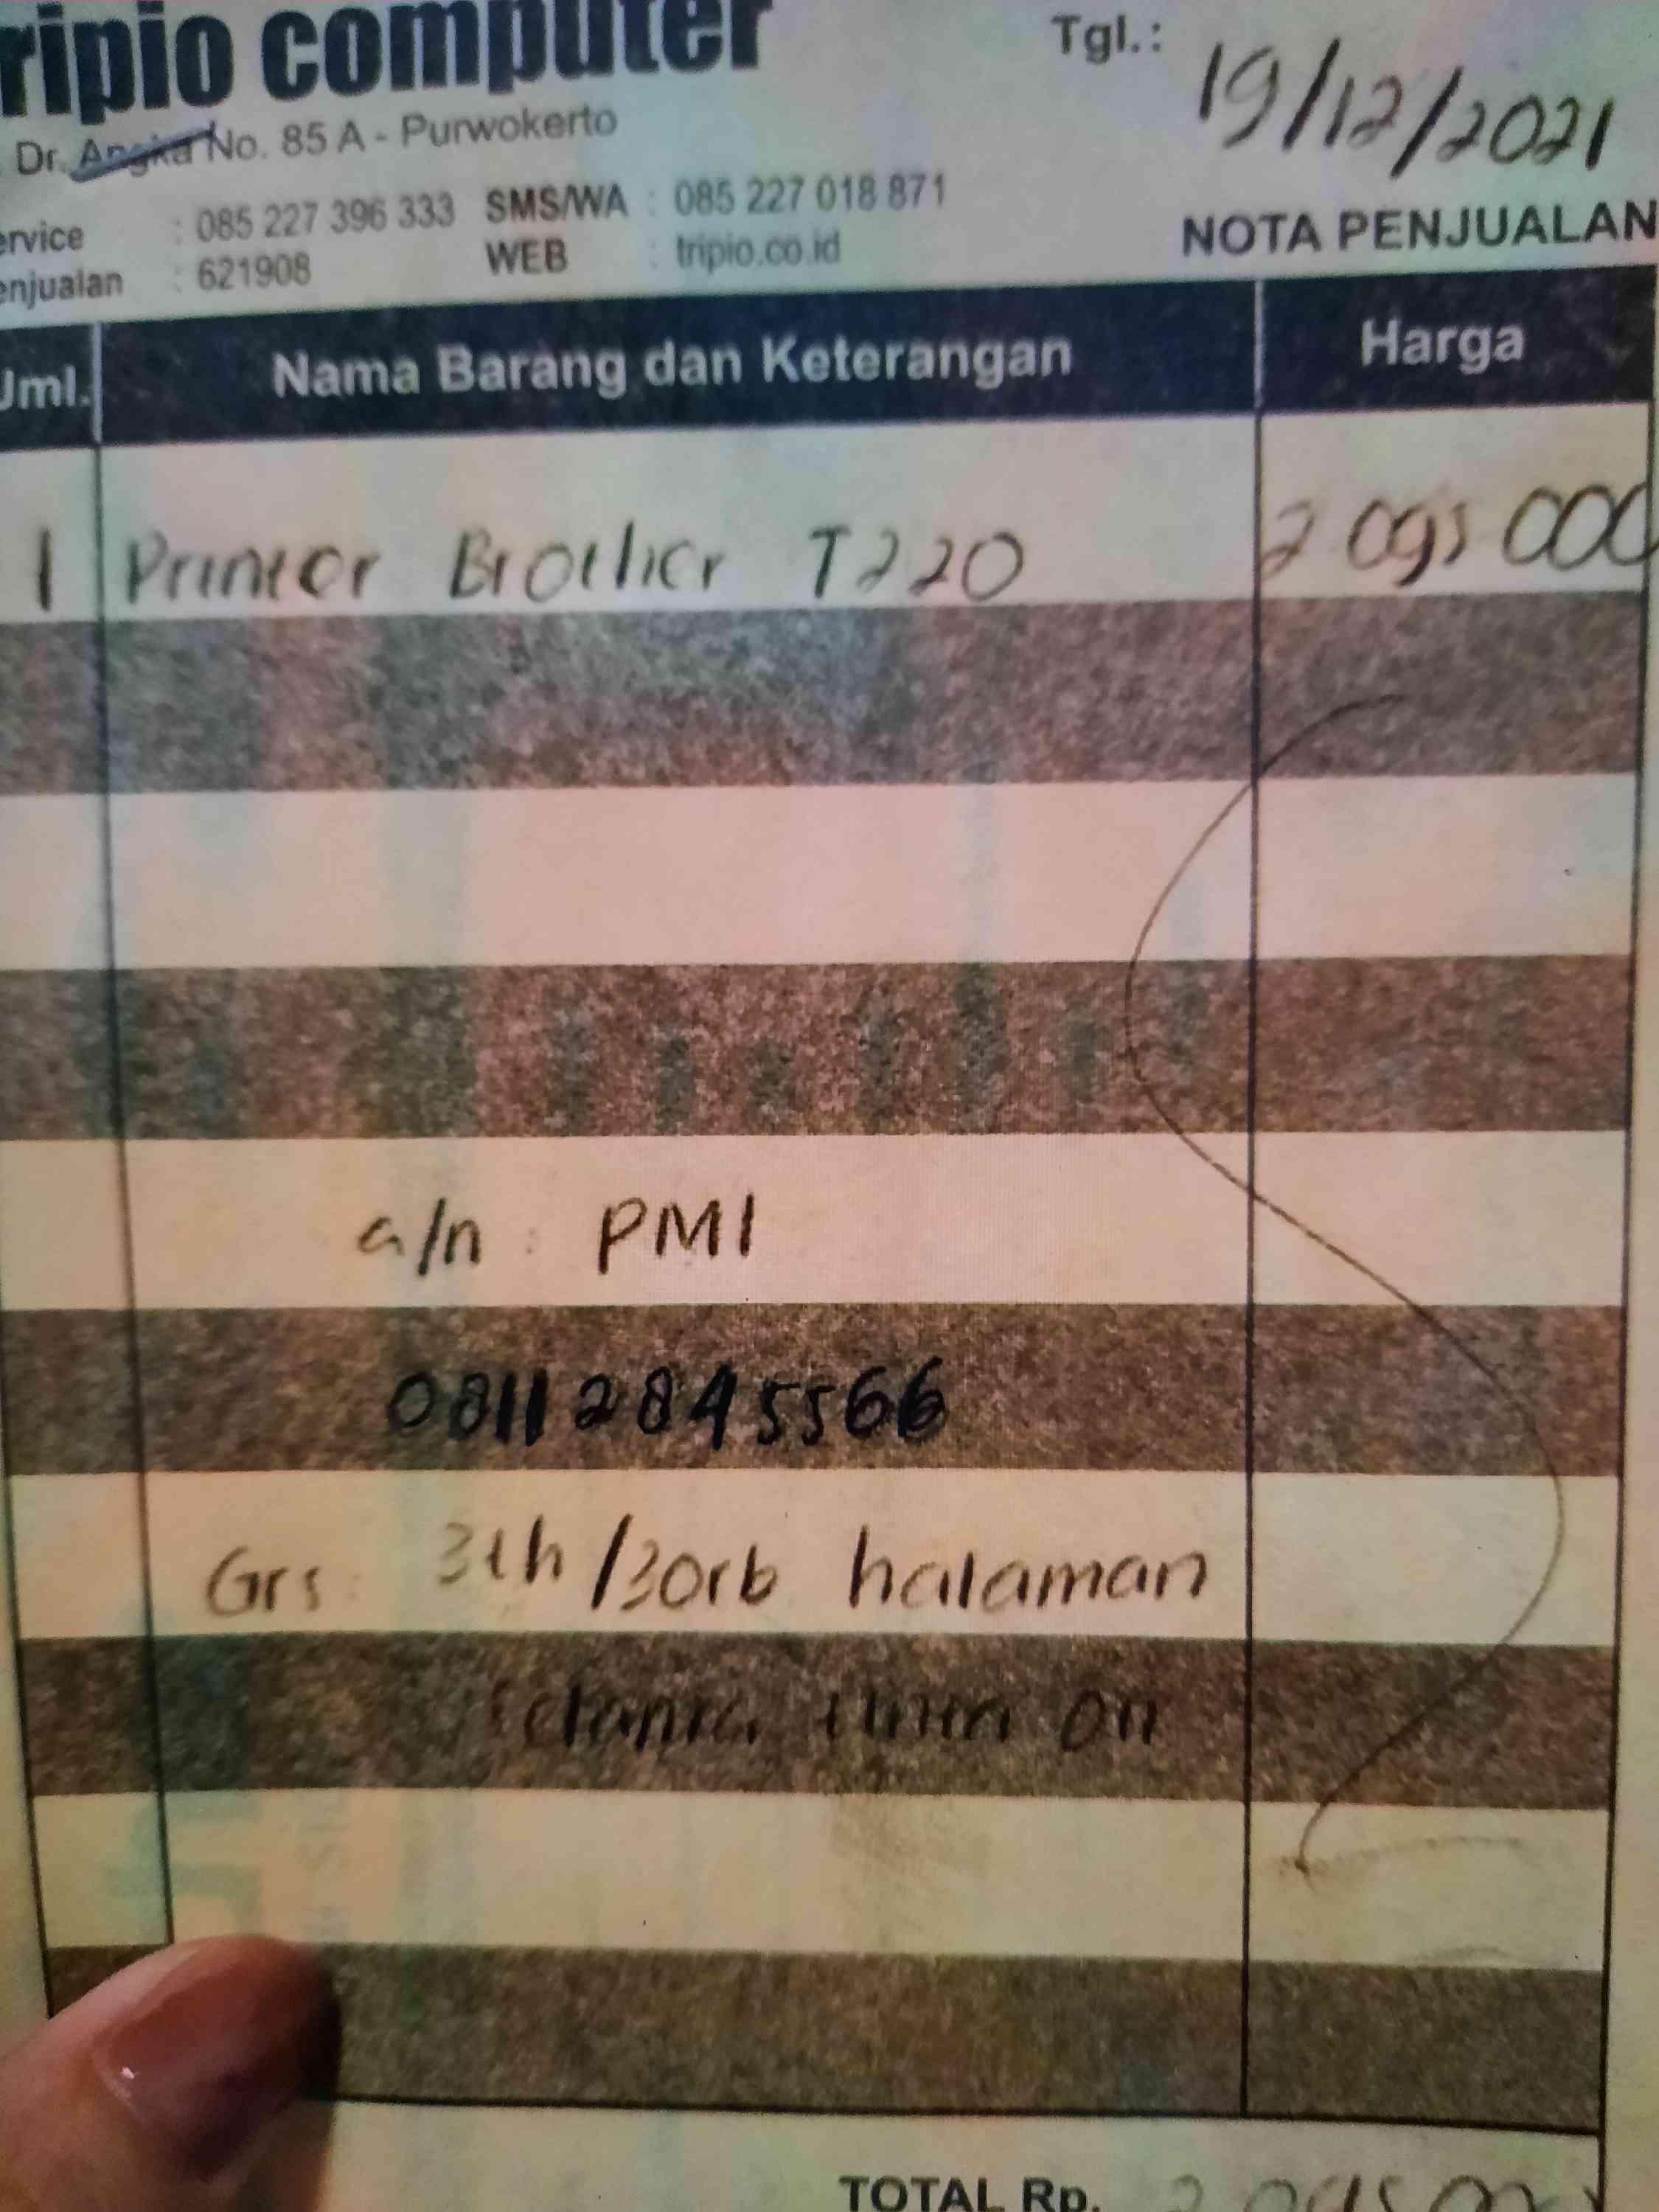 ripio computer
Tgl.: 19/12/2021
Dr. Angka No. 85 A - Purwokerto
ervice : 085 227 396 333 SMS/WA : 085 227 018 871
enjualan : 621908 WEB : tripio.co.id
NOTA PENJUALAN
Jml. Nama Barang dan Keterangan Harga
1 Printer Brother T220 2 095 000
a/n : PMI
08112845566
Grs : 3th/30rb halaman
on
TOTAL Rp.